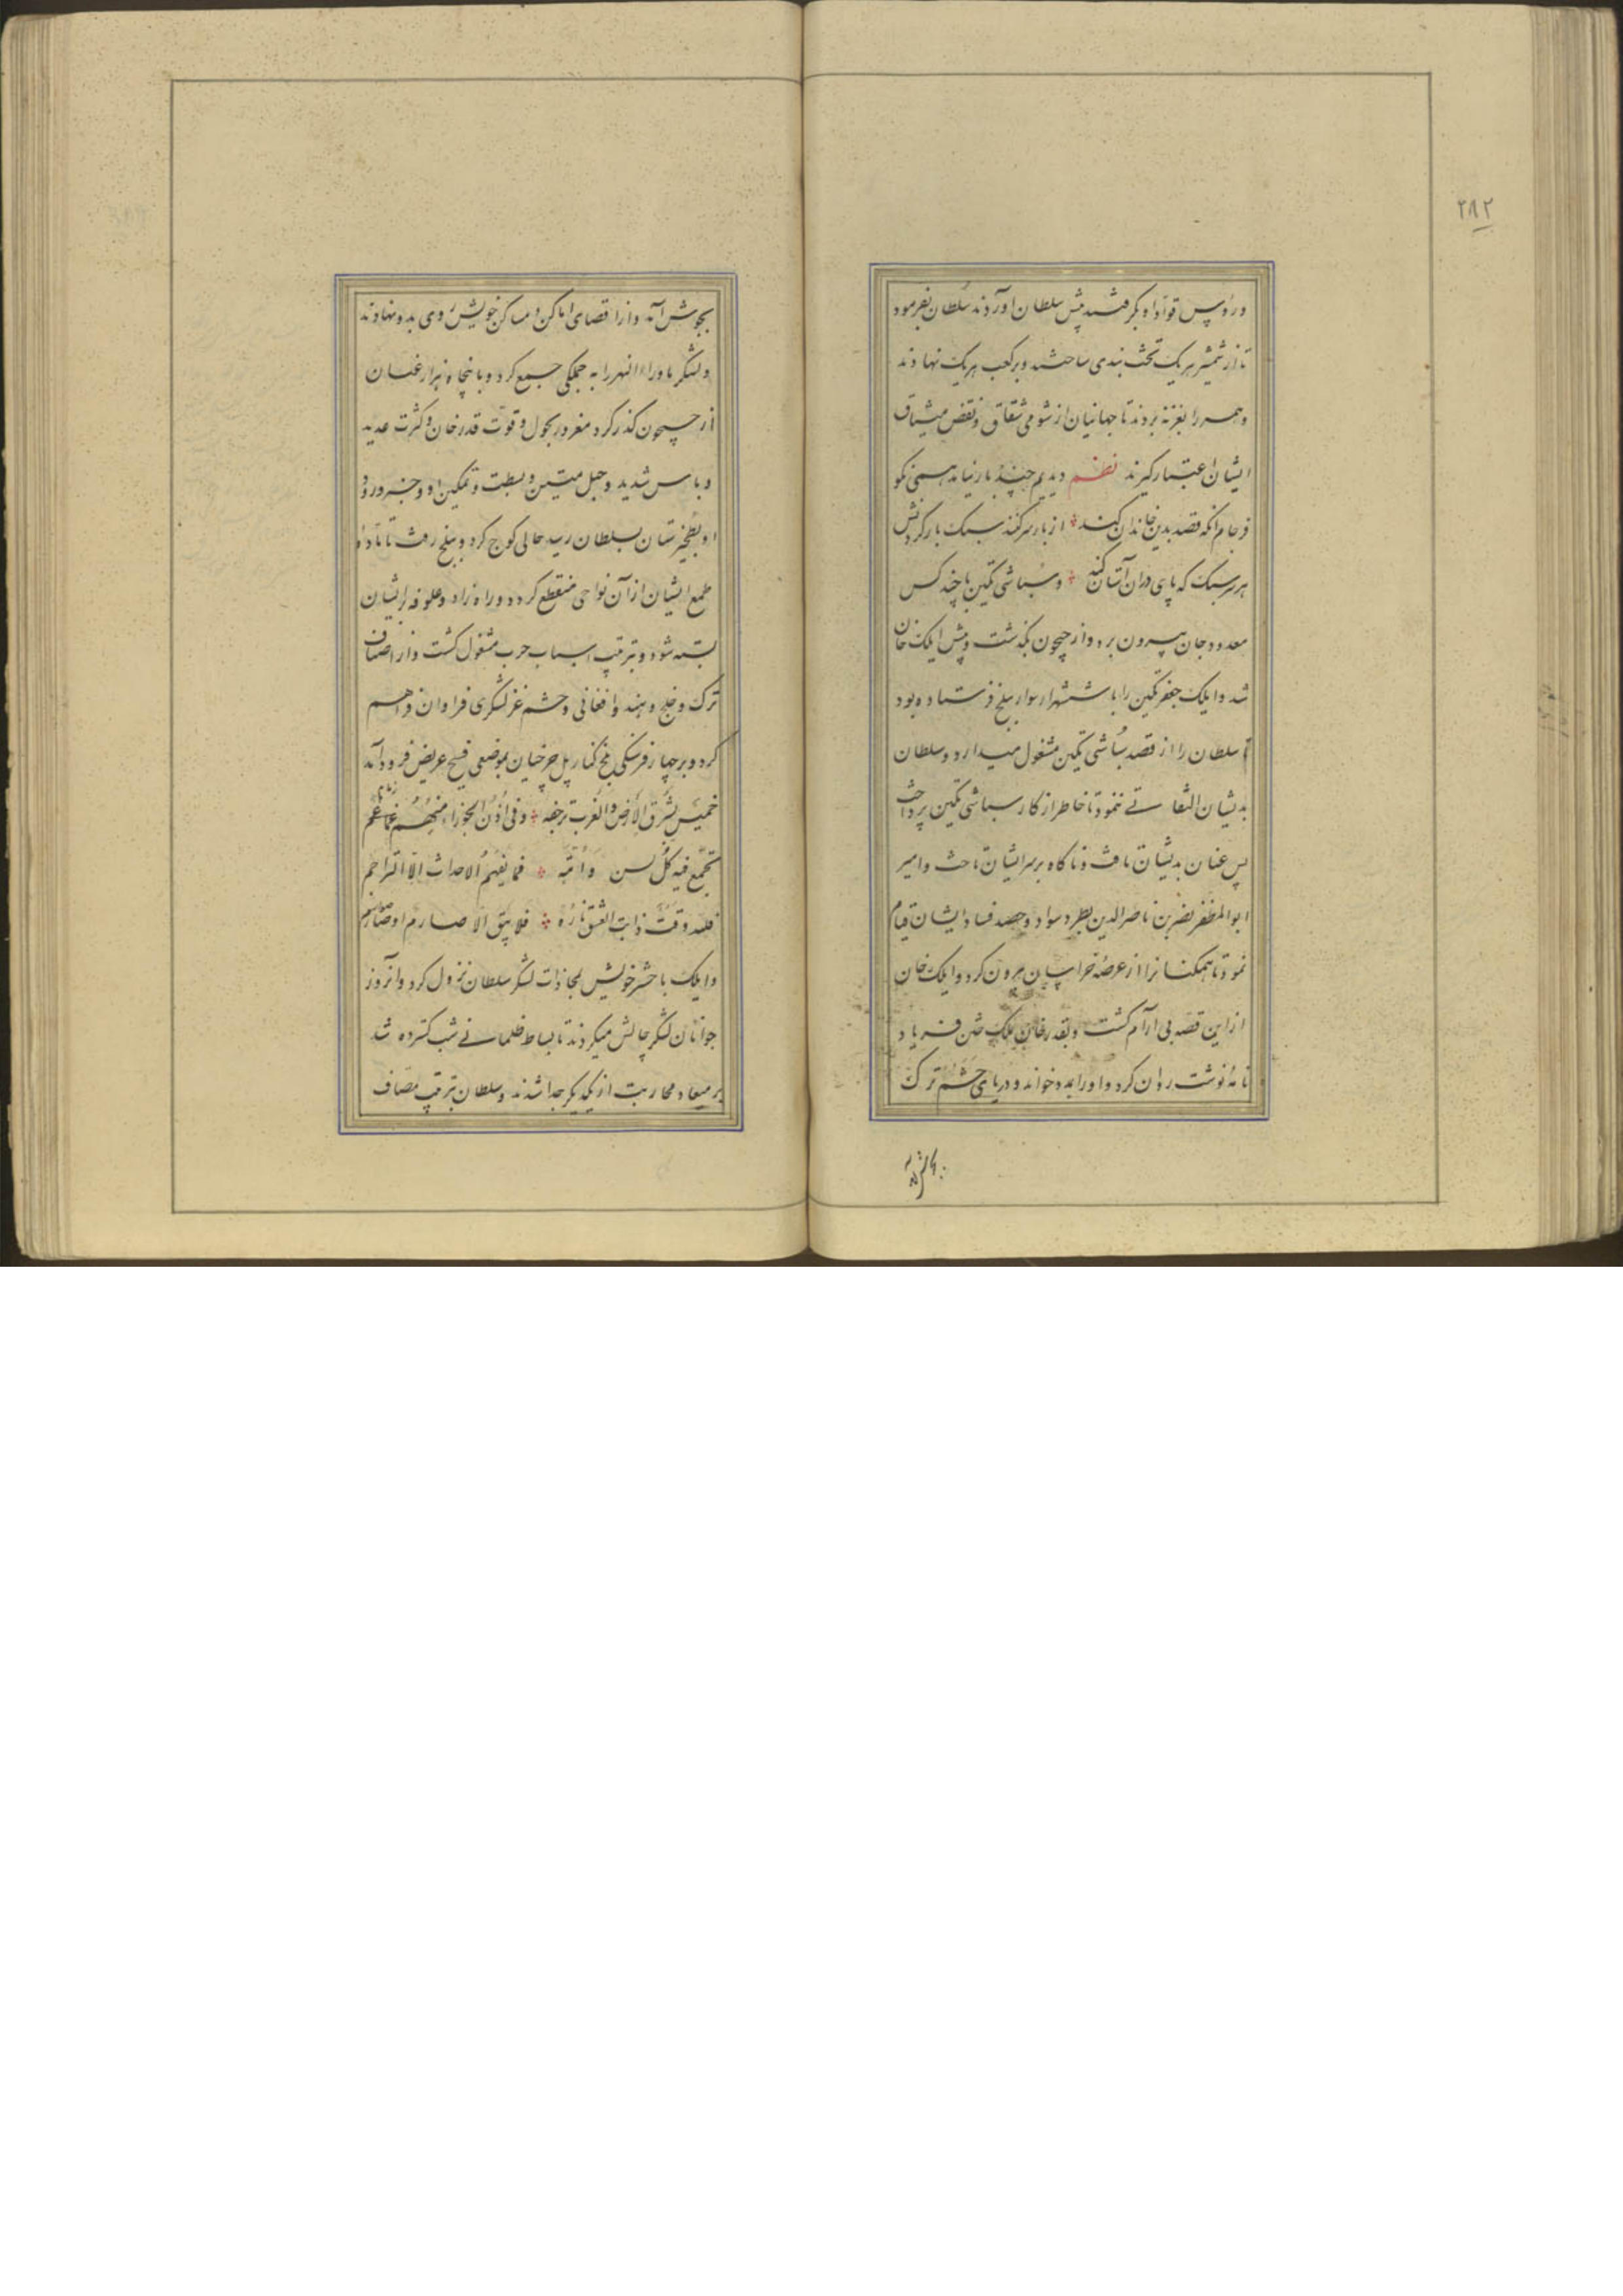 ۲۸۲
و رؤس قواد او بگرفتند پیش سلطان اوردند سلطان بفرمود
تا از شمشیر هریک تخت بندی ساختند و بر کعب هریک نهادند
و همه را بغزنه بردند تا جهانیان از شومی شقاق و نقض میثاق
ایشان اعتبار گیرند نظم دیدیم چند بار نیامد همی نکو
فرجام آنکه قصد بدین خاندان کند از بار سر کنند سبک بار گردنش
هر سر سبک که پای دران آستان کند و سباشی تکین با چند کس
معدود جان بیرون برد و از جیحون بگذشت و پیش ایلک خان
شد و ایلک جعفر تکین را با شش هزار سوار ببلخ فرستاده بود
تا سلطان را از قصد سباشی تکین مشغول میدارد و سلطان
بدیشان التفاتی ننمود تا خاطر از کار سباشی تکین پرداخت
پس عنان بدیشان تافت و ناکاه بر سر ایشان تاخت و امیر
ابوالمظفر نصر بن ناصرالدین بطرد سواد و حصد فساد ایشان قیام
نمود تا همکنانرا از عرصه خراسان بیرون کرد و ایلک خان
از این قصه بی آرام گشت و بقدرخان ملک ختن فریاد
نامه نوشت روان کرد و او را بمدد خواند و دریای حشم ترک
بجوش آمد
بجوش آمد و از اقصای اماکن و مساکن خویش روی بدو نهادند
و لشکر ماوراءالنهر را به جملگی جمع کرد و با پنجاه هزار عنان
از جیحون گذر کرد مغرور بحول و قوت قدرخان و کثرت عدید
و باس شدید و حبل متین و بسطت و تمکین او و خبر ورود
او بطخیرستان بسلطان رسید حالی کوچ کرد و ببلخ رفت تا ماده
طمع ایشان از آن نواحی منقطع گردد و راه زاد و علوفه بر ایشان
بسته شود و بترتیب اسباب حرب مشغول گشت و از اصناف
ترک و خلج و هند و افغانی و حشم غز لشکری فراوان فراهم
کرد و بر چهار فرسنگی بلخ کنار پل چرخیان بموضعی فسیح عریض فرود آمد
خمیس بشرق الارض و الغرب زحفه و فی اذن الجوزاء منهم زمازم
تجمع فیه کل لسن و امة فما یفهم الاحداث الا التراجم
فلله وقت ذابت الغش ناره فلا یبق الا صارم او ضبارم
و ایلک با حشر خویش بمحاذات لشکر سلطان نزول کرد و آنروز
جوانان لشکر چالش میکردند تا بساط ظلمانی شب گسترده شد
بر میعاد محاربت از یکدیگر جدا شدند و سلطان بترتیب مصاف